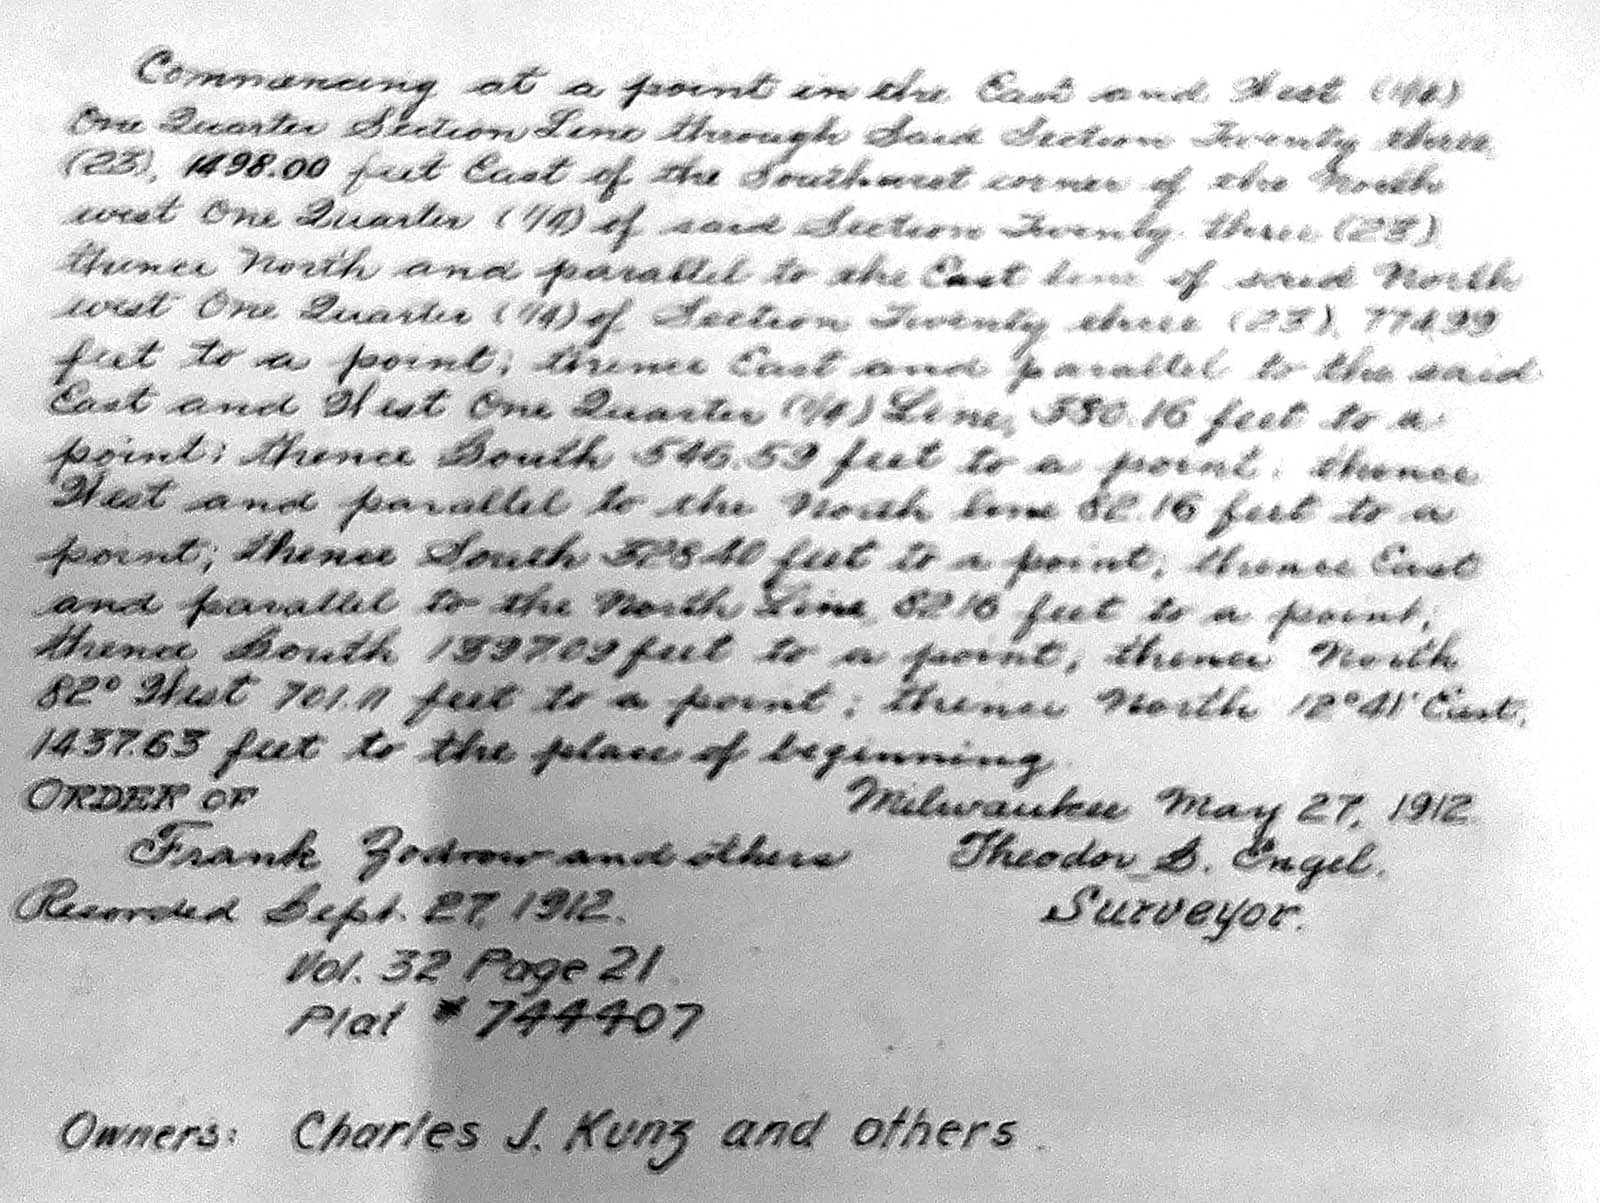 Commencing at a point in the East and West (1/4)
One Quarter Section Line through Said Section Twenty three
(23), 1498.00 feet East of the Southwest corner of the North
west One Quarter (1/4) of said Section Twenty three (23)
thence North and parallel to the East line of said North
west One Quarter (1/4) of Section Twenty three (23), 774.99
feet to a point; thence East and parallel to the said
East and West One Quarter (1/4) Line, feet to a
point; thence South 546.59 feet to a point; thence
West and parallel to the North line 82.16 feet to a
point; thence South feet to a point; thence East
and parallel to the North Line, 82.16 feet to a point;
thence South feet to a point; thence North
82° West 701.11 feet to a point; thence North 12°41' East,
1437.63 feet to the place of beginning
ORDER OF Milwaukee May 27, 1912
Frank Zodrow and others Theodor B. Engel.
Recorded Sept. 27, 1912. Surveyor.
Vol. 32 Page 21
Plat # 744407
Owners: Charles J. Kunz and others.